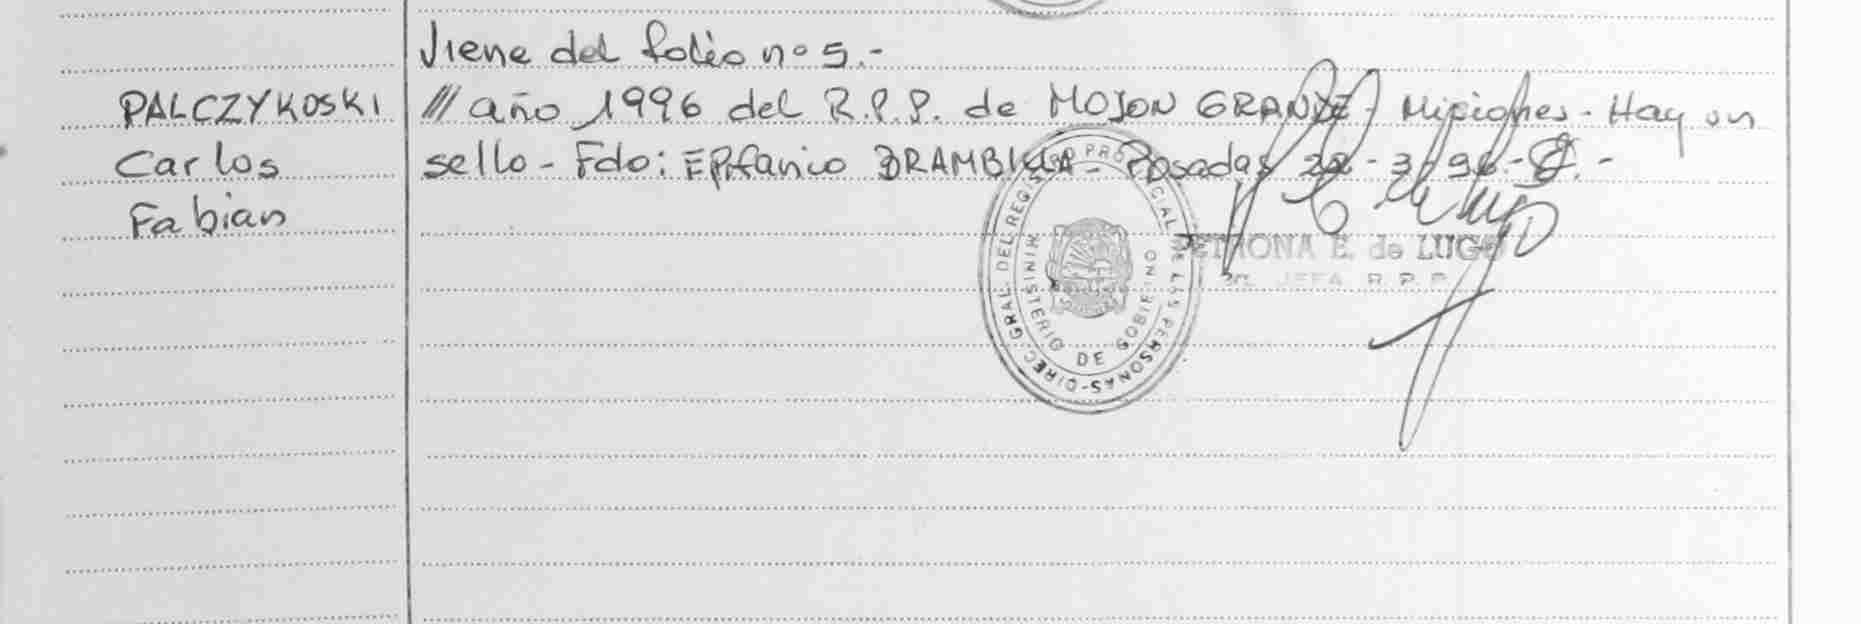 Viene del folio nº 5.-
PALCZYKOSKI /// año 1996 del R.P.P. de MOJON GRANDE - Misiones - Hay un
Carlos sello - Fdo: EPifanio BRAMBILLA - Posadas 28-3-96-
Fabian
DIREC. GRAL. DEL REGISTRO PROVINCIAL DE LAS PERSONAS
MINISTERIO DE GOBIERNO
PETRONA E. de LUGO
JEFA R.P.P.